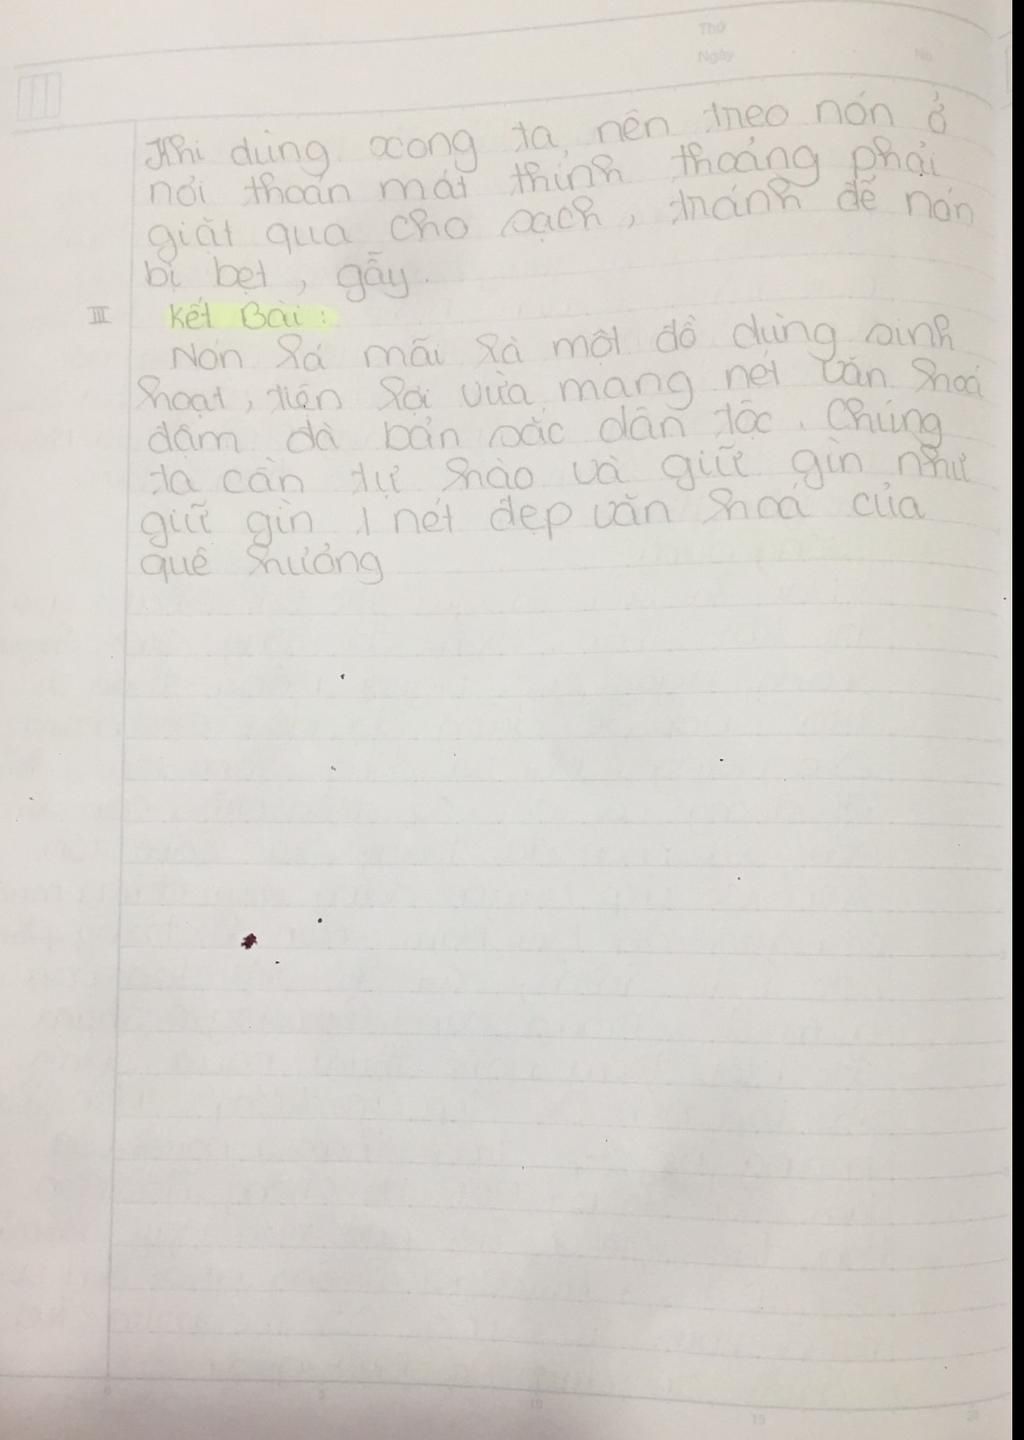 Thứ
Ngày
No
Khi dùng xong ta nên treo nón ở
nơi thoán mát thỉnh thoảng phải
giặt qua cho sạch, tránh để nón
bị bẹt, gẫy.
III Kết Bài:
Nón lá mãi là một đồ dùng sinh
hoạt, tiện lợi vừa mang nét văn hoá
đậm đà bản sắc dân tộc. Chúng
ta cần tự hào và giữ gìn như
giữ gìn 1 nét đẹp văn hoá của
quê hương